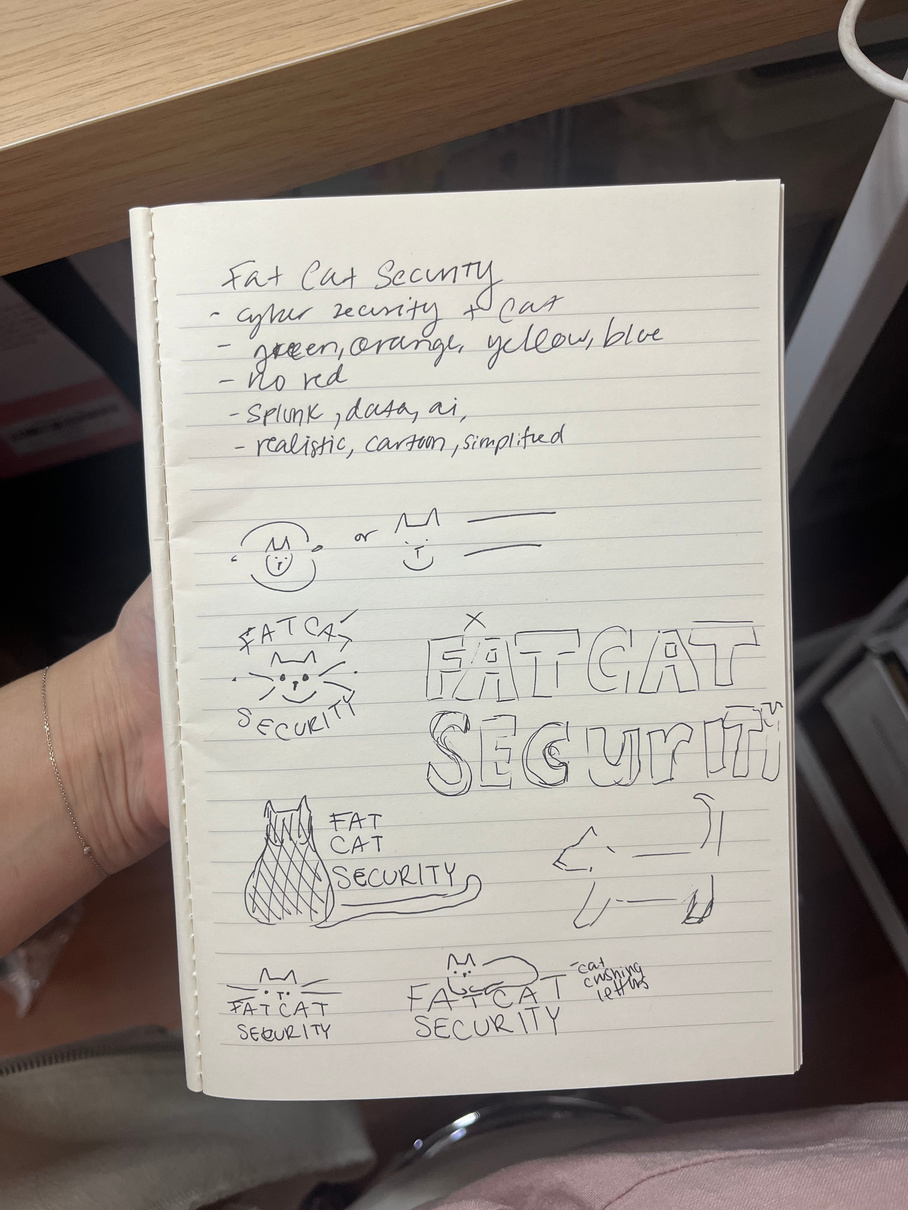 Fat Cat Security
- cyber security + cat
- green, orange, yellow, blue
- no red
- splunk, data, ai,
- realistic, cartoon, simplified
or
FATCAT
SECURITY
x
FATCAT
SECURITY
FAT
CAT
SECURITY
FATCAT
SECURITY
FATCAT
SECURITY
- cat
crushing
letters